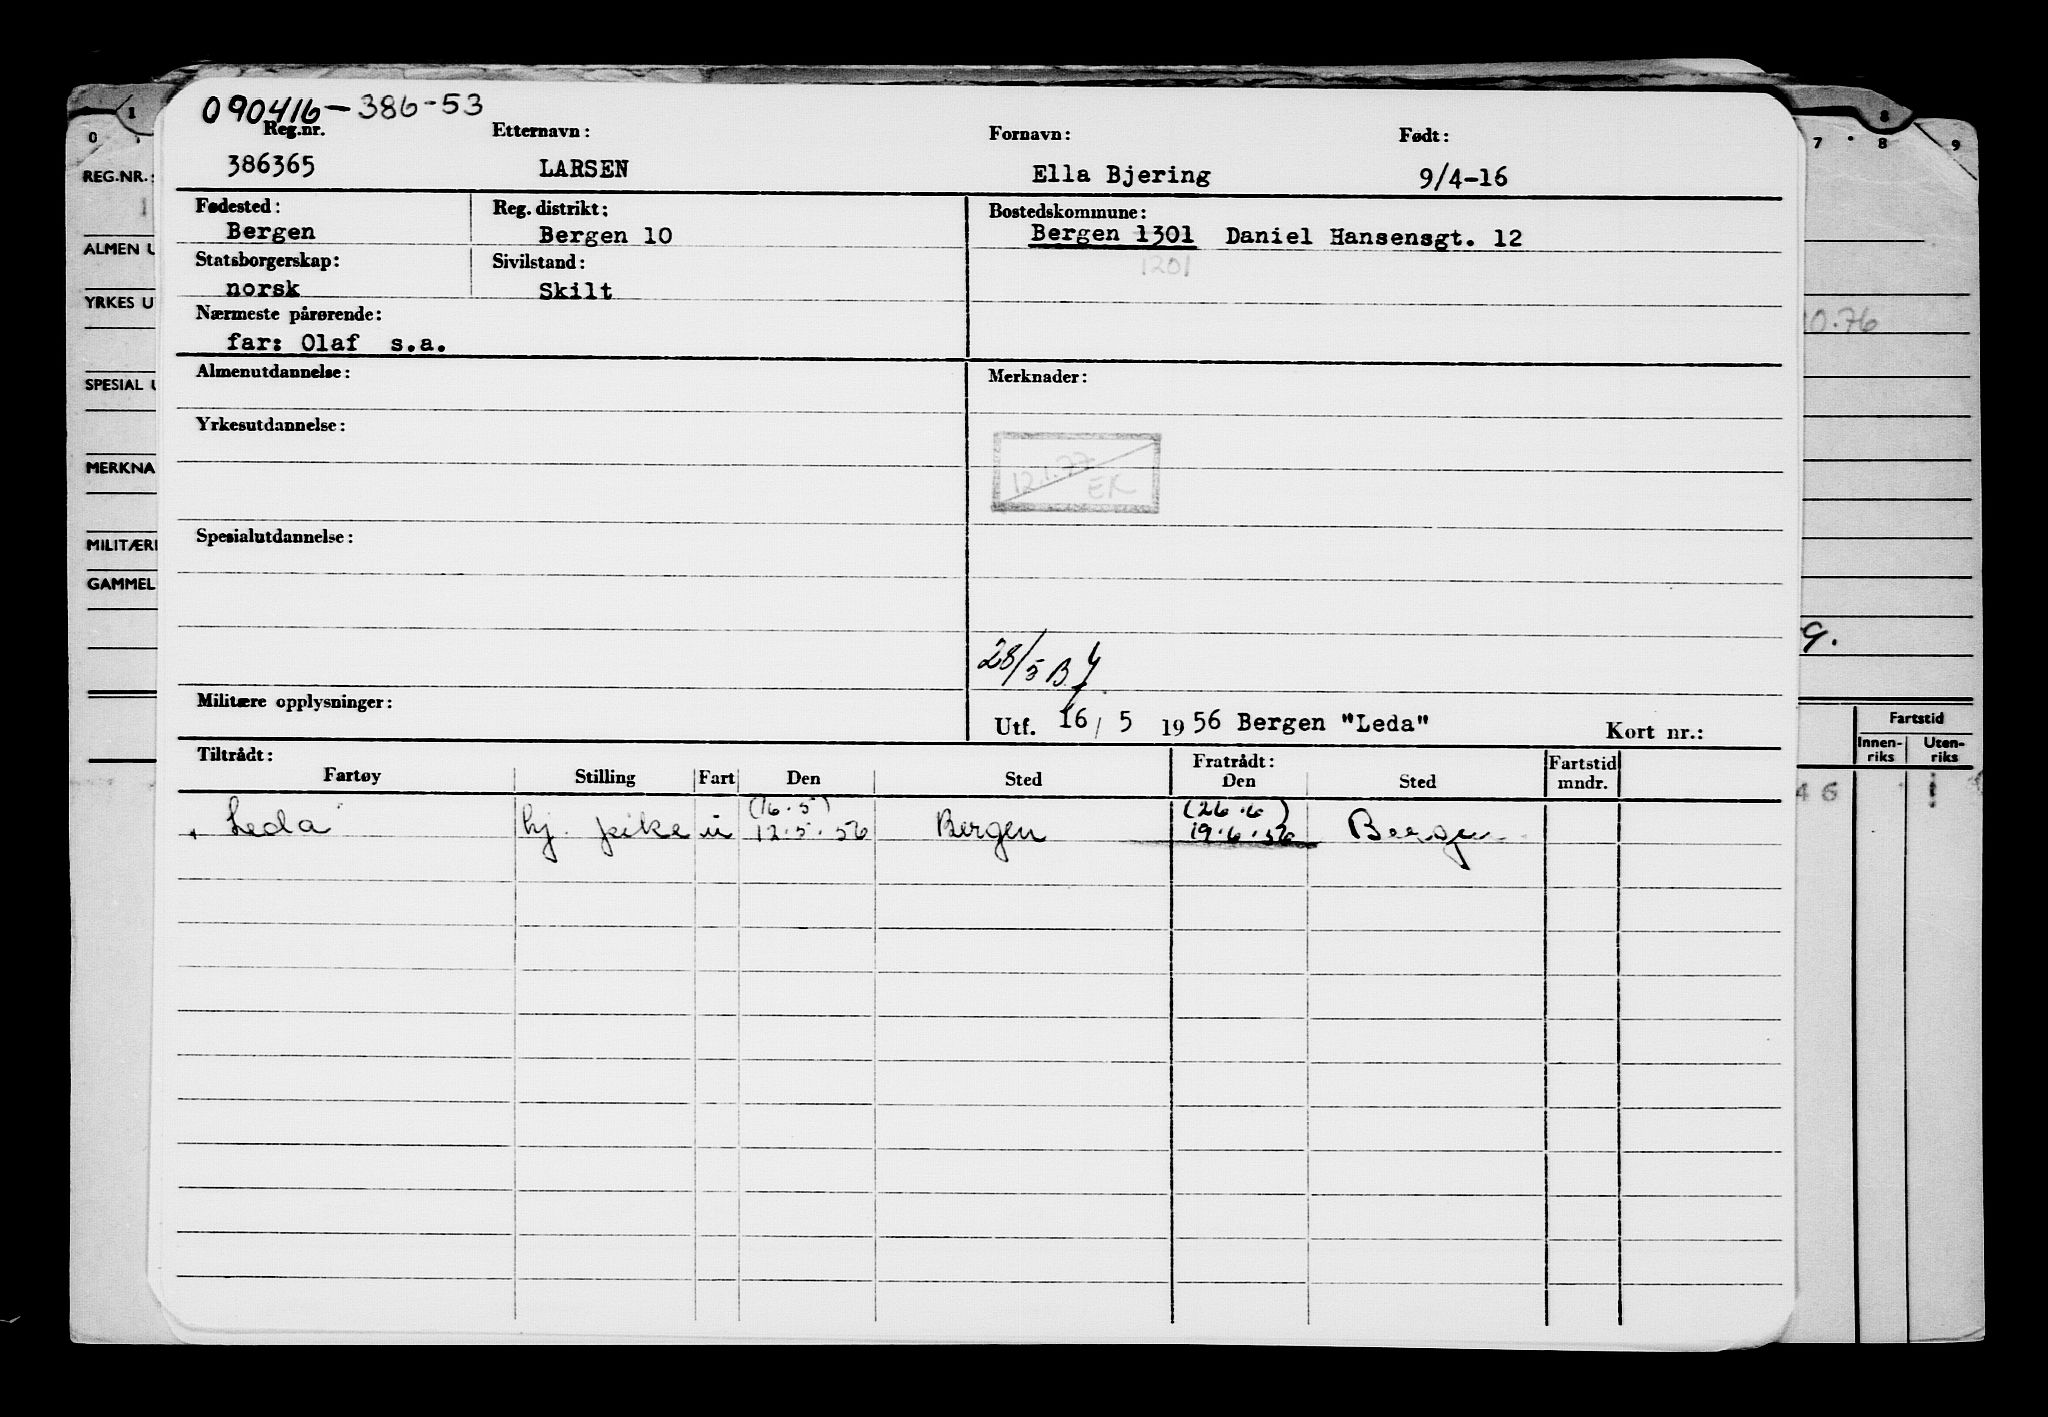 090416-386-53
Reg.nr. Etternavn: Fornavn: Født:
386365 LARSEN Ella Bjering 9/4-16
Fødested: Reg. distrikt: Bostedskommune:
Bergen Bergen 10 Bergen 1301 Daniel Hansensgt. 12
1201
Statsborgerskap: Sivilstand:
norsk Skilt
Nærmeste pårørende:
far: Olaf s.a.
Almenutdannelse: Merknader:
Yrkesutdannelse:
12.1.77
EK
Spesialutdannelse:
28/5 B
Militære opplysninger: Utf. 16/5 1956 Bergen "Leda" Kort nr.:
Tiltrådt: Fratrådt: Fartstid
Fartøy Stilling Fart Den Sted Den Sted mndr.
(16.5) (26.6)
Leda hj. pike u 12.5.56 Bergen 19.6.56 Bergen
0 1
REG.NR.:
ALMEN U
YRKES U
SPESIAL U
MERKNA
MILITÆRE
GAMMEL
7 8 8 9
10.76
g.
Fartstid
Innen-
riks
Uten-
riks
46